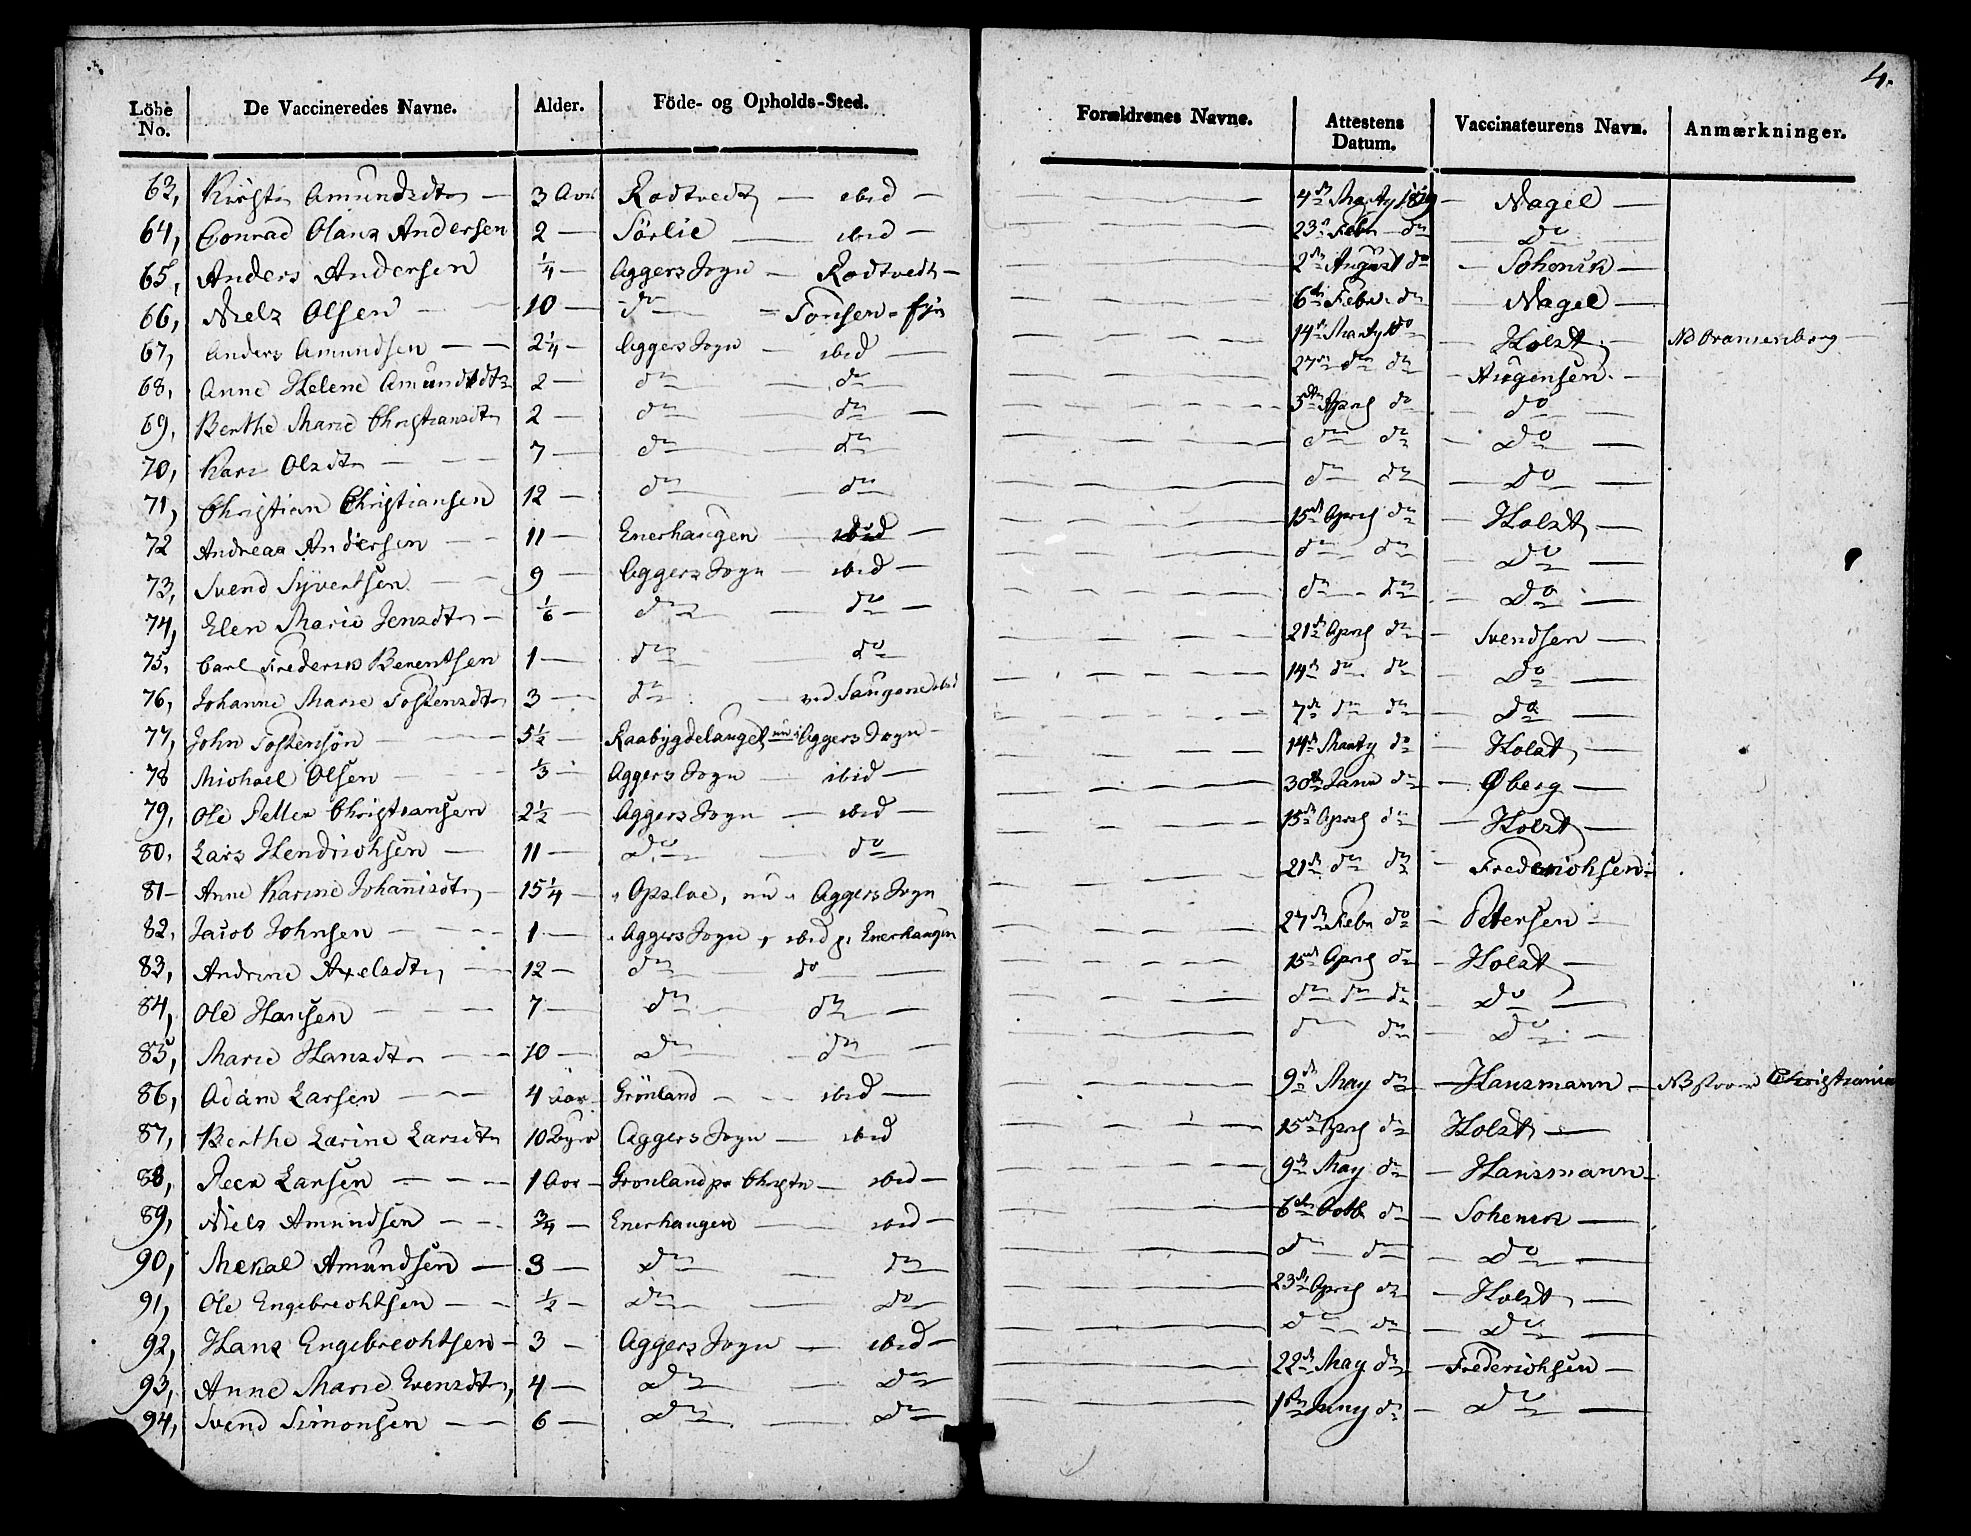 4.
Löbe No. De Vaccineredes Navne. Alder. Föde- og Opholds-Sted. Forældrenes Navne. Attestens Datum. Vaccinateurens Navn. Anmærkninger.
63, Kirsti Amundsdtr — 3 Aar Rodtvedt — ibid — 4de Marty 1819 — Nagel —
64, Conrad Olaus Andersen 2 — Sörlie — ibid — 23de Febr do — Do —
65, Anders Andersen ¼ — Aggers Sogn — Rodtvedt — 2den August do — Schenck —
66, Niels Olsen — 10 — do — 6te Febr. do — Nagel —
67, Anders Amundsen — 2¼ — Aggers Sogn — ibid — 14de Marty do — Holst — NB Oranienborg
68, Anne Helene Amundsdtr 2 — do — do 27de do do — Augensen —
69, Berthe Marie Christiansdtr 2 — do — do — 5te April do — do —
70, Kari Olsdtr — 7 — do — do do do — Do —
71, Christian Christiansen 12 — do — do do do — Do —
72 Andreas Andersen — 11 — Enerhaugen — ibid — 15de April do — Holst —
73, Svend Syvertsen — 9 — Aggers Sogn — ibid — do do — Do —
74, Elen Marie Jensdtr — ⅙ — do — do — do do — Do —
75, Carl Frederik Berentsen 1 — do — do 21de April do — Svendsen —
76, Johanne Marie Tostensdtr 3 — do — ved Saugene ibid 14de do do — Do —
77, John Tostensön — 5½ — Raabygdelauget, nu i Aggers Sogn — 7de do do — Do —
78 Michael Olsen — ⅓ — Aggers Sogn — ibid — 14de Marty do — Holst —
79, Ole Petter Christiansen 2½ — Aggers Sogn — ibid — 30te Janr do — Øberg —
80. Lars Hendrichsen — 11 — Do — do 15de April do — Holst —
81 — Anne Karine Johannisdtr, 15¼ — Opsloe, nu Aggers Sogn 21de do do — Frederichsen —
82. Jacob Johnsen — 1 — Aggers Sogn, ibid p. Enerhaugen 27de Febr do — Petersen —
83, Andrine Axelsdtr — 12 — do do — 15de April do — Holst —
84, Ole Hansen — 7 — do — do — do do do — Do —
85, Marie Hansdtr — 10 — Do — do — do do — Do —
86, Adam Larsen — 4 Aar Grönland — ibid — 9de May do — Hansmann — NB Christiania
87, Berthe Larine Larsdtr 10 Aggers Sogn — ibid 15de April do Holst —
88, Peer Larsen — 1 Aar — Grönland pr Christn — ibid — 9de May do — Hansmann —
89, Niels Amundsen — ¾ — Enerhaugen — ibid — 6te Octb do — Schenck —
90, Mekal Amundsen — 3 — Do — do do do — Do —
91, Ole Engebrechtsen — ½ — Do — Do 23de April do — Holst —
92, Hans Engebrechtsen — 3 — Aggers Sogn — ibid — do do — Do —
93, Anne Marie Evensdtr, 4 — Do — Do 22de May do — Frederichsen —
94, Svend Simonsen — 6 — Do — Do 1ste Juny do — Do —